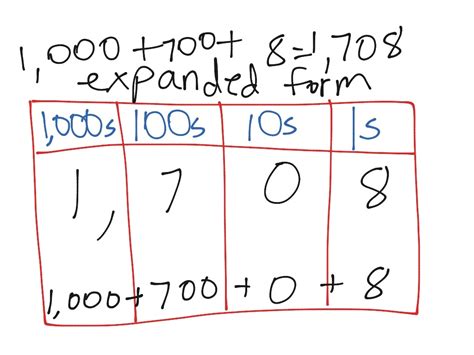 1,000+700+ 8=1,708
expanded form
1,000s 100s 10s 1s
1, 7 0 8
1,000+700+0+8